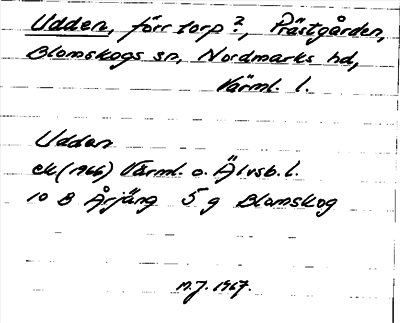 Udden, förr torp?, Prästgården,
Blomskogs sn, Nordmarks hd,
Värml. l.
Udden
ek (1966) Värml. o. Älvsb. l.
10 B Årjäng 5 g Blomskog
N.J. 1967.